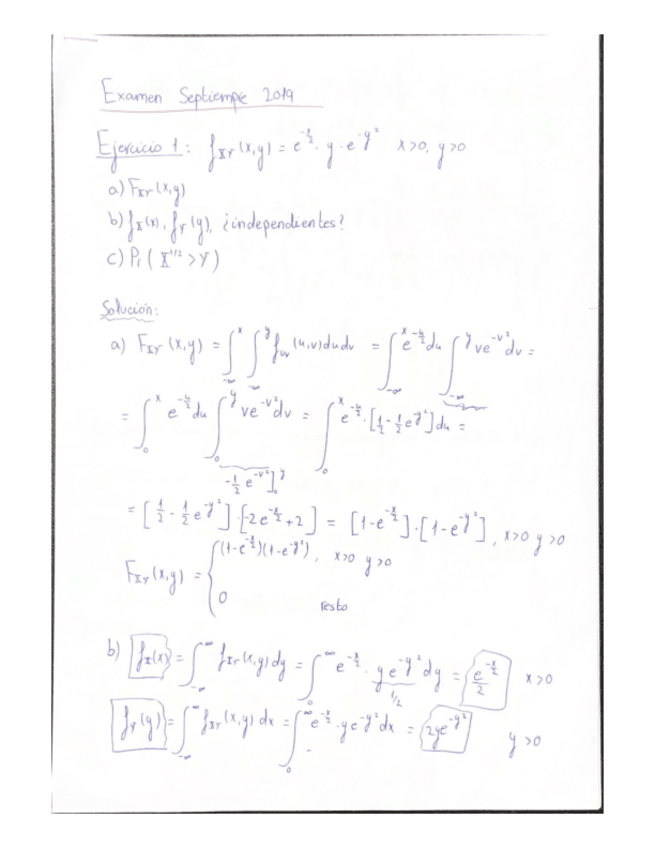 Examen Septiempre 2019
Ejercicio 1: f_XY(x,y) = e^(-x/2) · y · e^(-y²)  x>0, y>0
a) F_XY(x,y)
b) f_X(x), f_Y(y), ¿independientes?
c) Pr( X^(1/2) > Y)
Solución:
a) F_XY(x,y) = ∫_{-∞}^x ∫_{-∞}^y f_uv(u,v)dudv = ∫_{-∞}^x e^(-u/2) du ∫_{-∞}^y ve^(-v²) dv =
= ∫_0^x e^(-u/2) du ∫_0^y ve^(-v²) dv = ∫_0^x e^(-u/2) · [1/2 - 1/2 e^(-y²)] du =
-1/2 e^(-v²)]_0^y
= [1/2 - 1/2 e^(-y²)] · [-2e^(-x/2) + 2] = [1-e^(-x/2)] · [1-e^(-y²)], x>0 y>0
F_XY(x,y) = { (1-e^(-x/2))(1-e^(-y²)), x>0 y>0
0 resto
b) f_X(x) = ∫_{-∞}^∞ f_XY(x,y) dy = ∫_0^∞ e^(-x/2) · ye^(-y²) dy = e^(-x/2)/2  x>0
1/2
f_Y(y) = ∫_{-∞}^∞ f_XY(x,y) dx = ∫_0^∞ e^(-x/2) · ye^(-y²) dx = 2ye^(-y²)  y>0